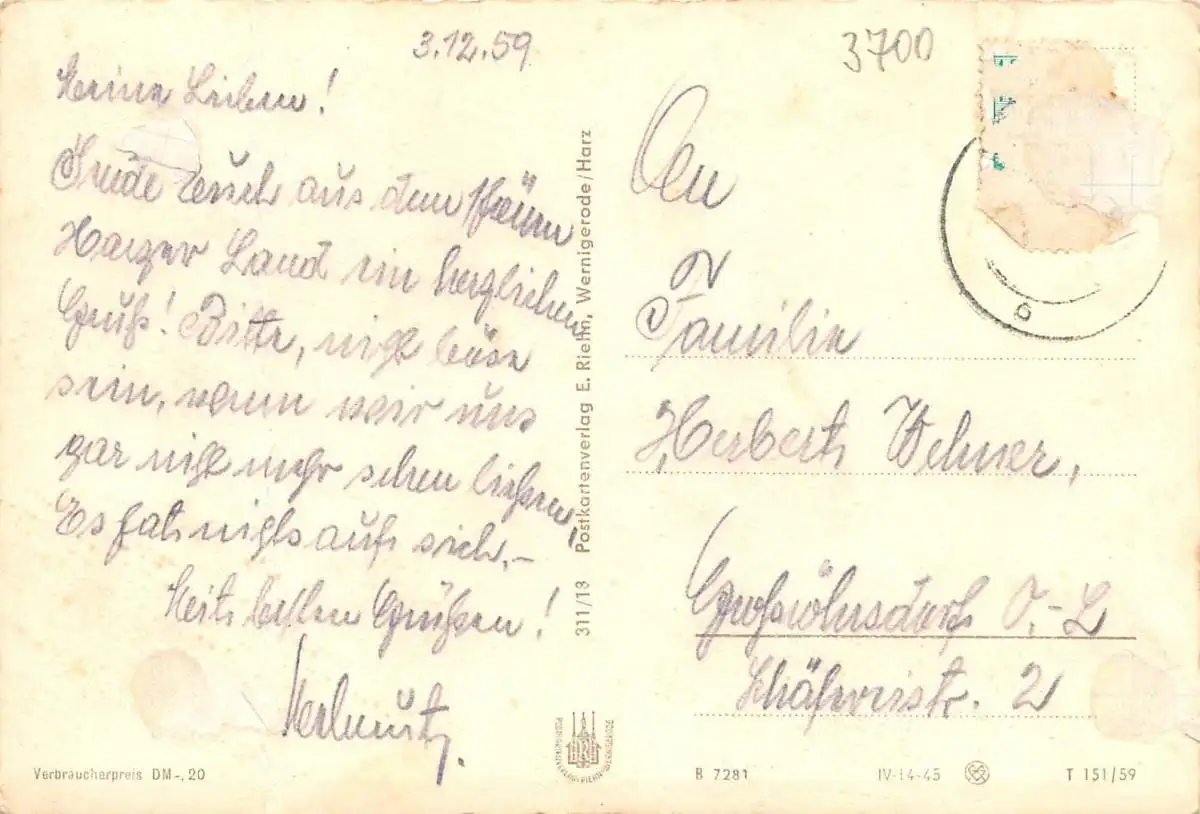 3.12.59
3700
Meine Lieben!
Sende Euch aus dem schönen
Harzer Land ein herzlichen
Gruß! Bitte, nicht böse
sein, wenn wir uns
gar nicht mehr sehen ließen,
Es hat nichts auf sich,-
Mit besten Grüßen!
Helmut.
311/13 Postkartenverlag E. Riehn, Wernigerode/Harz
An
Familie
Herbert Wehner,
Großröhrsdorf O.-L
Schäfereistr. 2
6
Verbraucherpreis DM-,20
B 7281
IV-14-45
T 151/59